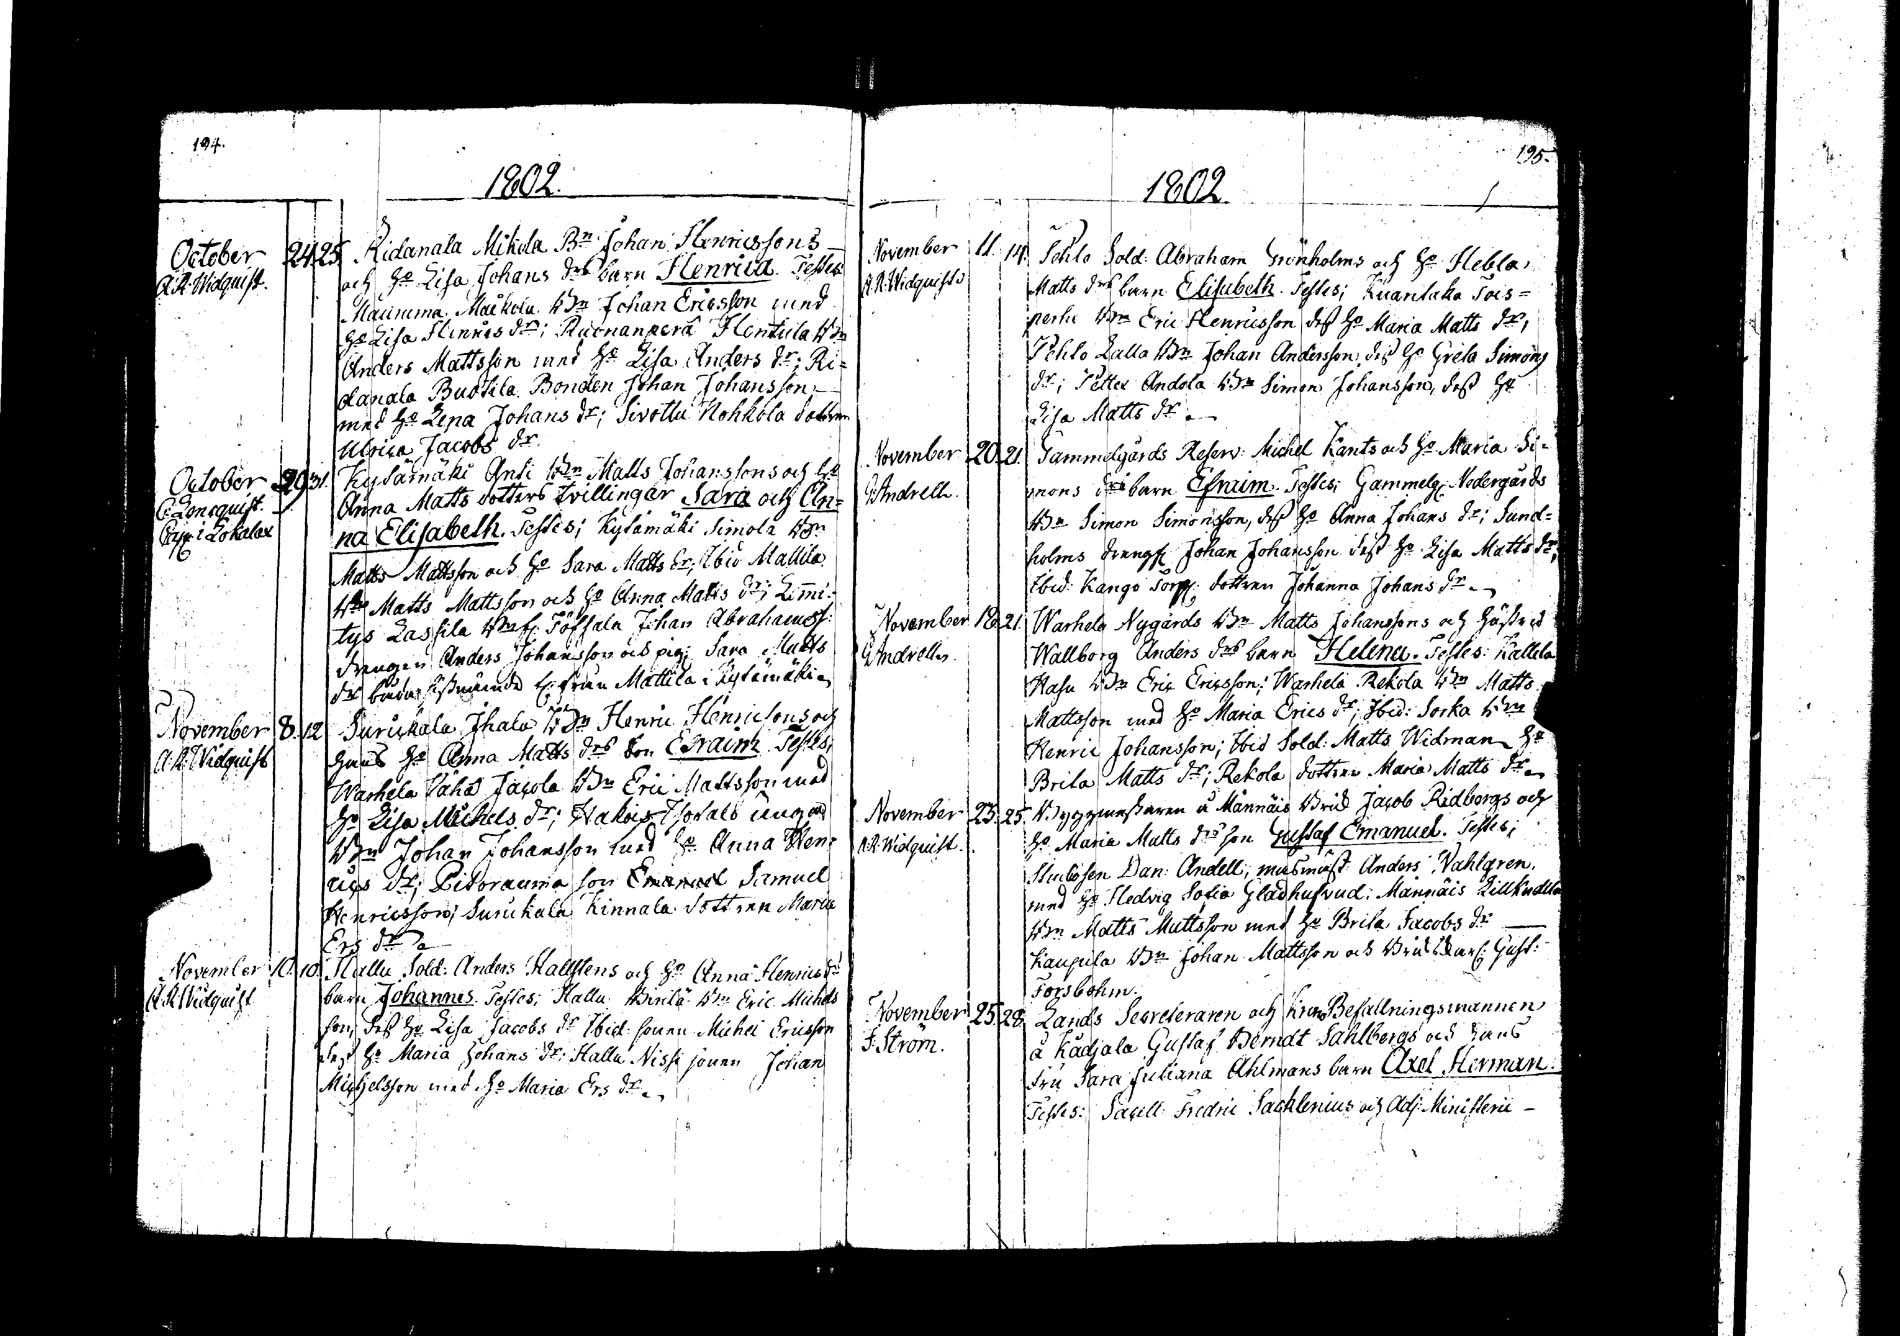 194.
1802.
October 24. 25. Ridanala Mikola Bn Johan Henricssons
A. R. Widquist. och Ho Lisa Johans drs barn Henrica. Testes:
Mauruma Maikola Bn Johan Ericsson med
Ho Lisa Henrics dr; Ruonanperä Hentula Bn
Anders Mattsson med Ho Lisa Anders dr; Ri-
danala Buotila Bonden Johan Johansson
med Ho Lena Johans dr; Sivottu Kohkola dottren
Ulrica Jacobs dr.
October 29. 31. Kytämäki Anti Bn Matts Johanssons och Ho
C. Lönnquist. Anna Matts dotters tvillingar Sara och An-
Cap: i Lokalax na Elisabeth. Testes; Kytämäki Simola Bn
Matts Mattsson och Ho Sara Matts dr; Ibid Mattila
Bn Matts Mattsson och Ho Anna Matts dr; Lemi-
tys Lassila Johan Abrahamss:
drengen Anders Johansson och pig: Sara Matts
dr från Mattila i Kytämäki
November 8. 12. Surikkala Jhala Bn Henric Henricsons och
A. R. Widquist hans Ho Anna Matts drs son Efraim. Testes;
Warhela Vähä Jacola Bn Eric Mattsson med
Ho Lisa Michels dr; Hakois Isotalo unga
Bn Johan Johansson med Ho Anna Hen-
rics dr; Pitorauma son Emanuel Samuel
Henricsson; Surikkala Kinnala dottren Maria
Ers dr
November 10. 10. Hallu Sold: Anders Hallstens och Ho Anna Henrics drs
A. R. Widquist barn Johannes. Testes; Hallu Bn Eric Michels
son, dess Ho Lisa Jacobs dr Ibid sonen Michel Ericsson
dess Ho Maria Johans dr; Hallu Nissi sonen Johan
Michelsson med Ho Maria Ers dr
195.
1802.
November 11. 14. Pehlo Sold: Abraham Grönholms och Ho Hebla
A. R. Widquist Matts drs barn Elisabeth. Testes; Kuanlaka Sois-
perhe Bn Eric Henricsson dess Ho Maria Matts dr;
Pehlo Lalla Bn Johan Andersson dess Ho Greta Simons
dr; Petter Andola Bn Simon Johansson, dess Ho
Lisa Matts dr
November 20. 21. Gammelgårds Reserv: Michel Kants och Ho Maria Si-
G. Andrell. mons drs barn Efraim. Testes; Gammelg: Nedergårds
Bn Simon Simonsson, dess Ho Anna Johans dr; Sund-
holms dreng Johan Johansson dess Ho Lisa Matts dr;
Ibid: Kango Torp: dottren Johanna Johans dr
November 18. 21. Warhela Nygårds Bn Matts Johanssons och Hustrus
G. Andrell. Wallborg Anders drs barn Helena. Testes: Kallela
Hasu Bn Eric Ericsson; Warhela Rekola Bn Matts
Mattsson med Ho Maria Erics dr; Ibid: Sorka Bn
Henric Johansson; Ibid Sold: Matts Widman Ho
Brita Matts dr; Rekola dottren Maria Matts dr
November 23. 25. Byggmästaren å Männäis Bruk Jacob Ridbergs och
A. R. Widquist. Ho Maria Matts drs son Gustaf Emanuel. Testes;
Dan: Andell, Anders Wahlgren,
med Ho Hedvig Sofia Gladhufvud; Männäis Lillkudila
Bn Matts Mattsson med Ho Brita Jacobs dr
Kaupila Bn Johan Mattsson och Gust:
Forsbohm.
November 25. 28. Lands Secreteraren och Krono Befallningsmannen
F. Ström. å Kådjala Gustaf Berndt Sahlbergs och hans
Fru Sara Juliana Ahlmans barn Axel Herman.
Testes: Sacell: Fredric Sacklenius och Adj: Ministerii